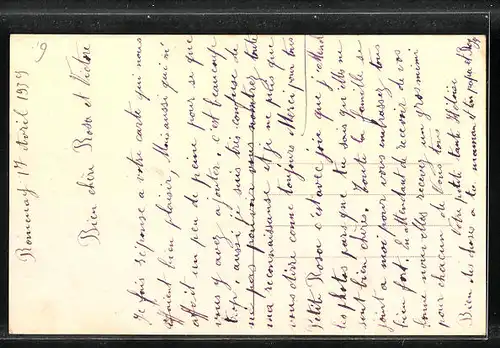 Romenay 17 Avril 1939
Bien chère Rosa et Victore
Je fais réponse a votre carte qui nous
fesaient bien plaisir, Mais aussi qui ni
affait un peu de peine pour se que
vous y avez ajouter. c'est beaucoup
trop, aussi je suis très confuse de
ne pas pouvoir vous montrez toute
ma reconnaissance et je ne plus que
vous dirre comme toujours Merci pour tous
Petite Rosa c'est avec joie que j'
les photos pars que tu sais que elle me
sont bien chère. Toute la famille se
joint a moi pour vous embrassez tous
bien fort. En attendant de recevoir de vos
bonne nouvelles recevez un gros mimi
pour chacun de vous tous
Votre petite tante Héloïse
Bien des choses a ta maman et ton papa et